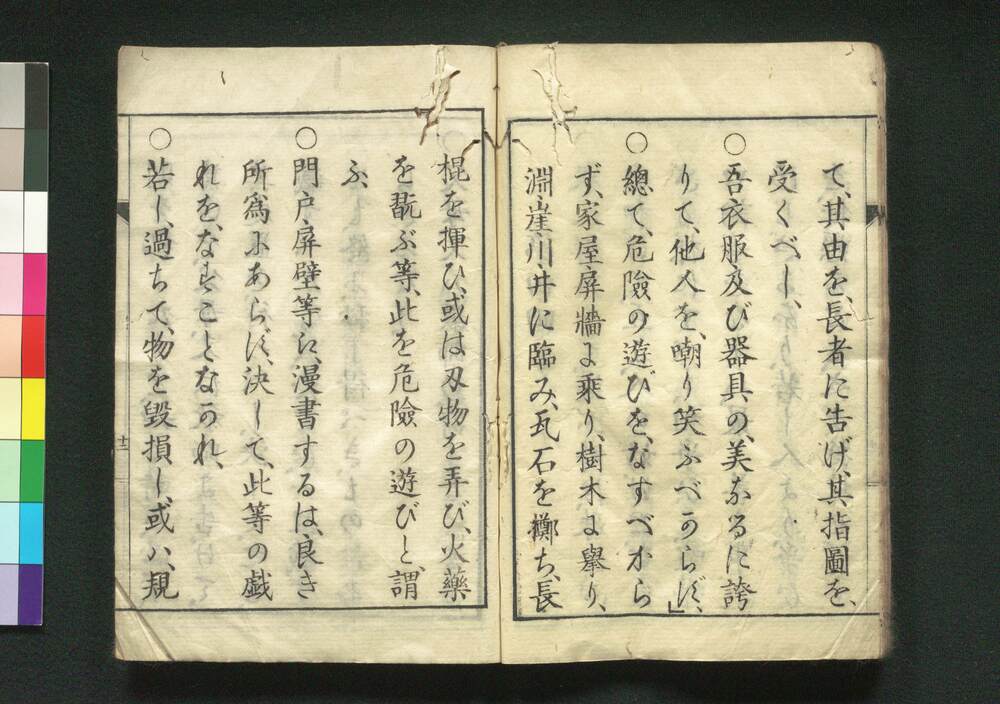 て、其由を、長者に告げ、其指圖を、
受くべし、
○吾衣服及び器具の、美なるに誇
りて、他人を、嘲り笑ふべからず、」
○總て、危險の遊びを、なすべから
ず、家屋屏牆に乘り、樹木に擧り、
淵崖川井に臨み、瓦石を擲ち、長
棍を揮ひ、或は刃物を弄び、火藥
を翫ぶ等、此を危險の遊びと、謂
ふ、
○門戸屏壁等に、漫書するは、良き
所爲にあらず、決して、此等の戯
れを、なすことなかれ、
○若し、過ちて、物を毀損し、或ハ、規
十二